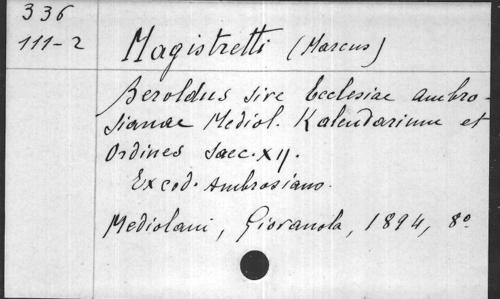 336
111-2
Magistretti (Marcus)
Beroldus sive Ecclesiae ambro-
sianae Mediol. Kalendarium et
Ordines saec. XII.
Ex cod. Ambrosiano.
Mediolani, Giovanola, 1894, 8º